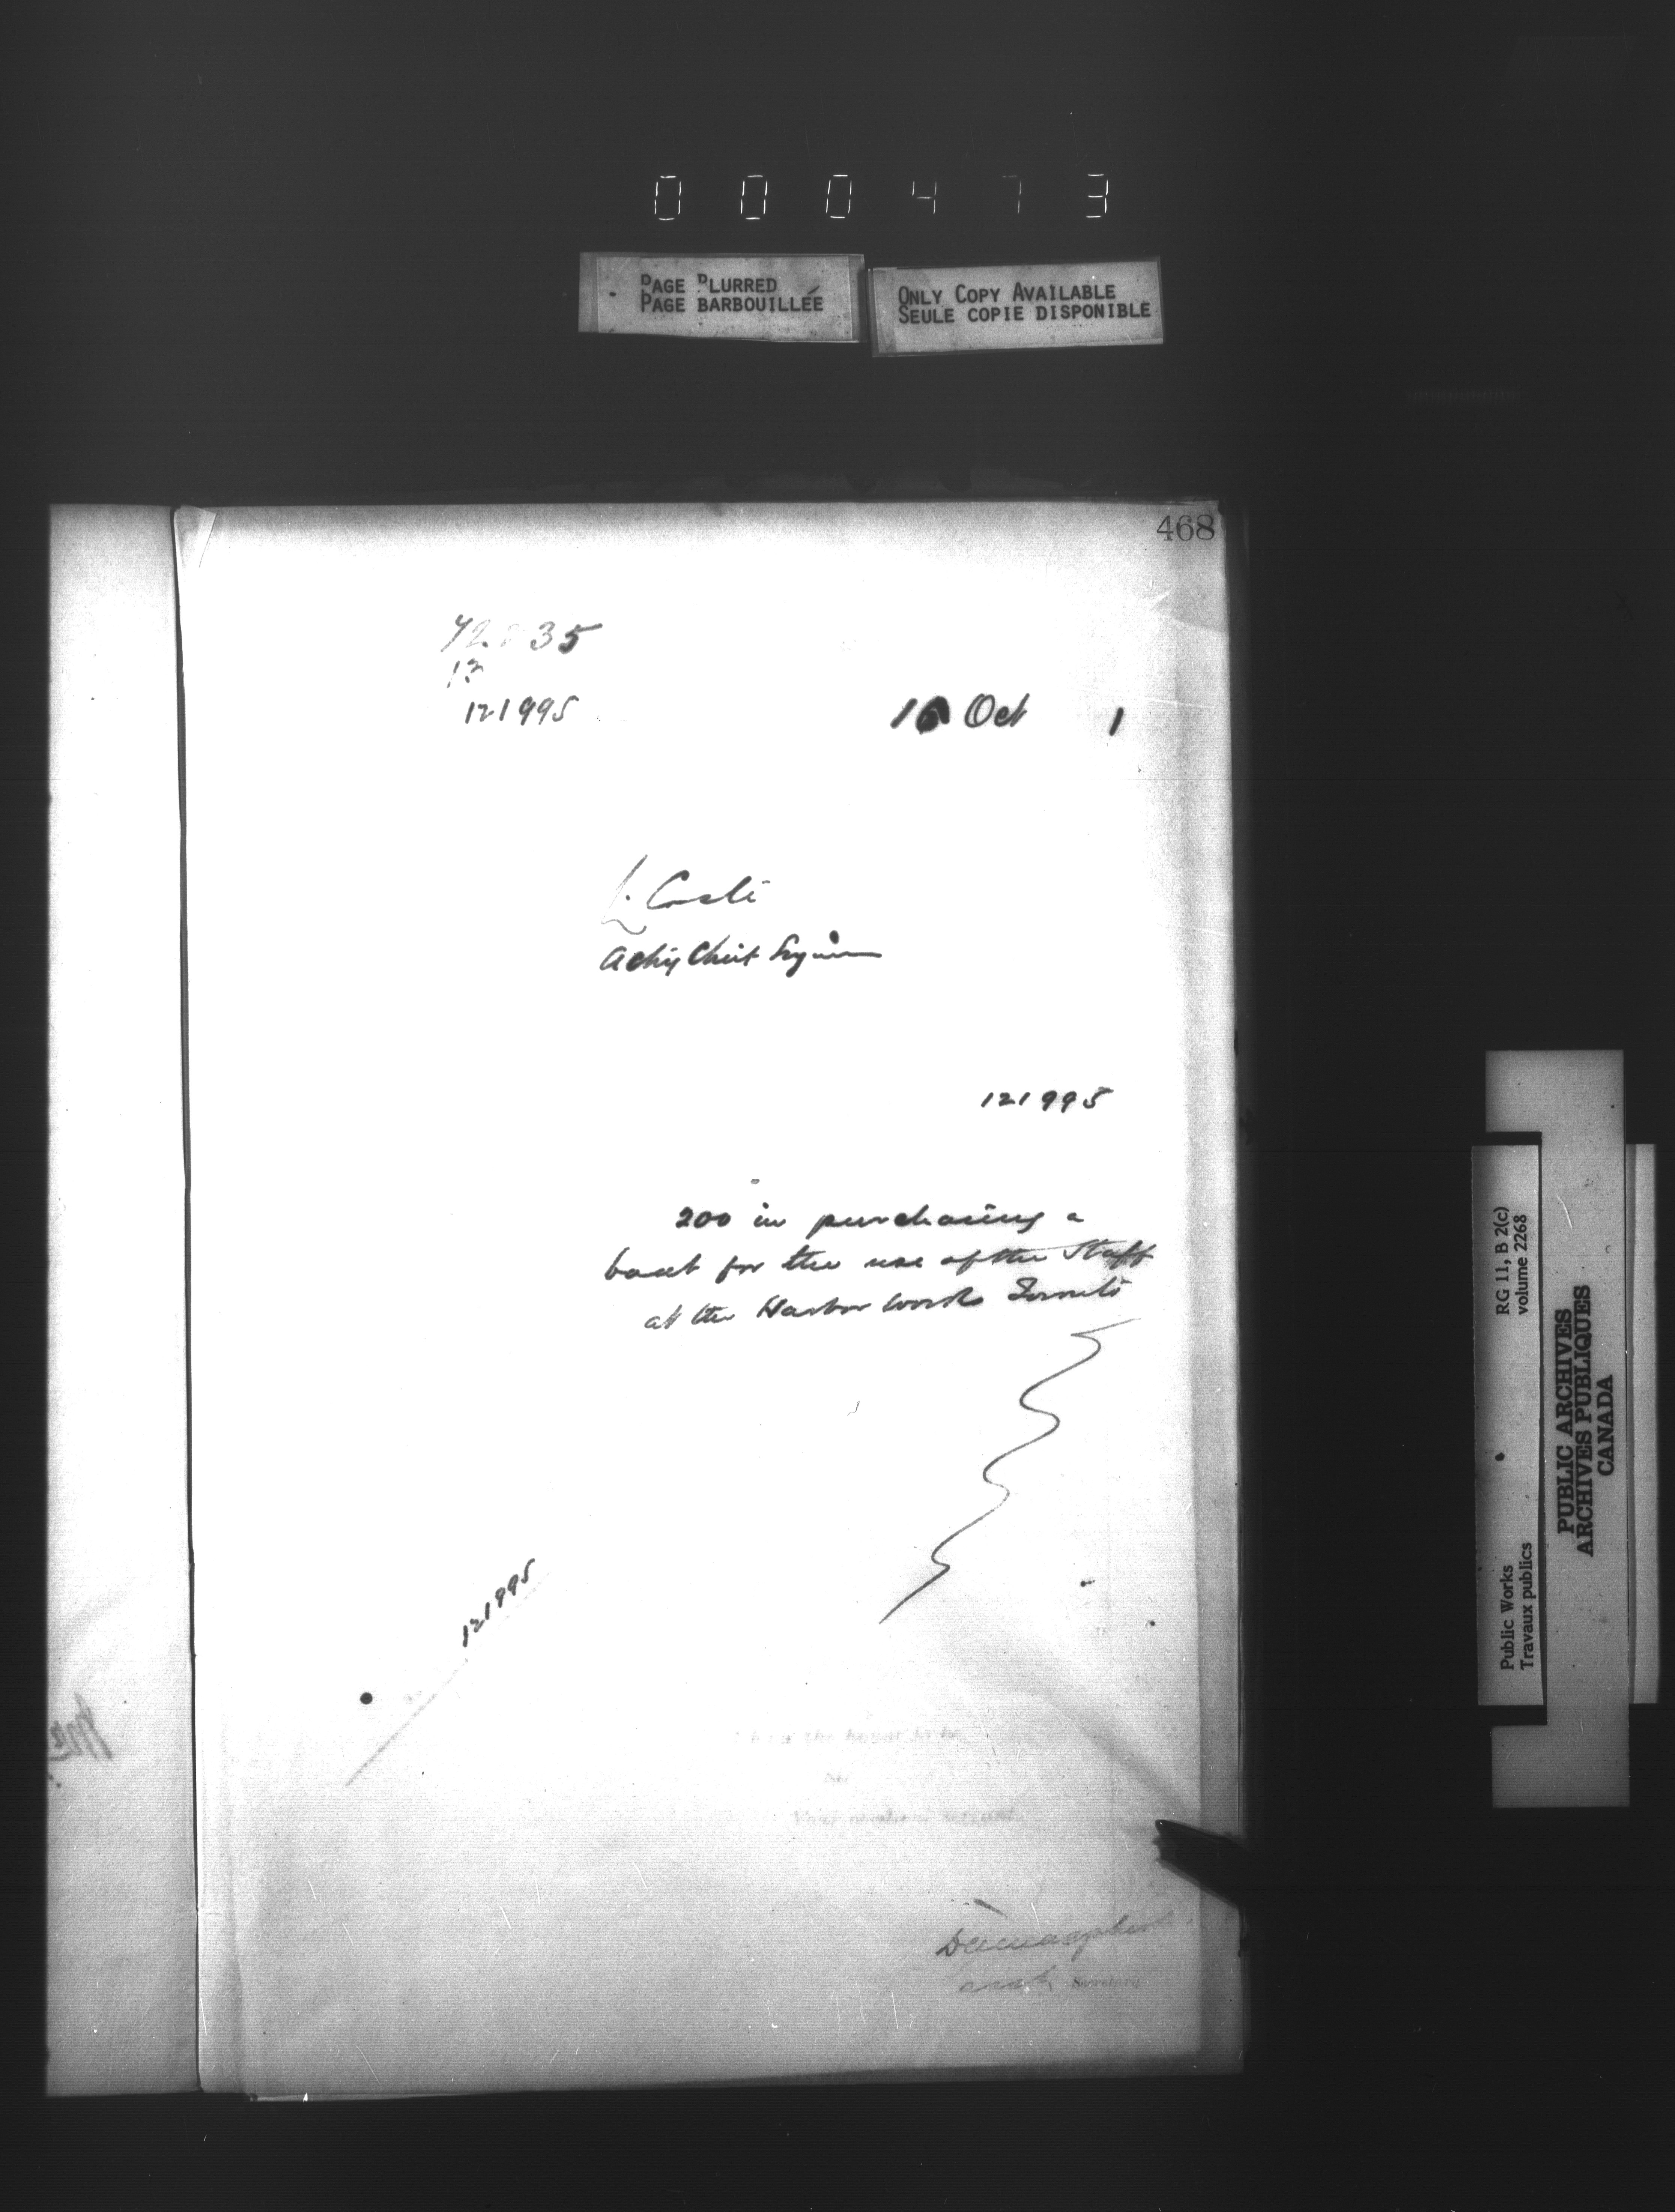 000473
PAGE BLURRED
PAGE BARBOUILLÉE
ONLY COPY AVAILABLE
SEULE COPIE DISPONIBLE
468
35
13
121995
16 Oct 1
L. Coste
Acting Chief Engineer
121995
200 in purchasing a
boat for the use of the Staff
at the Harbor works Toronto
121995
I have the honor to be
Sir
Your obedient servant
Secretary
Public Works
Travaux publics
RG 11, B 2(c)
volume 2268
PUBLIC ARCHIVES
ARCHIVES PUBLIQUES
CANADA